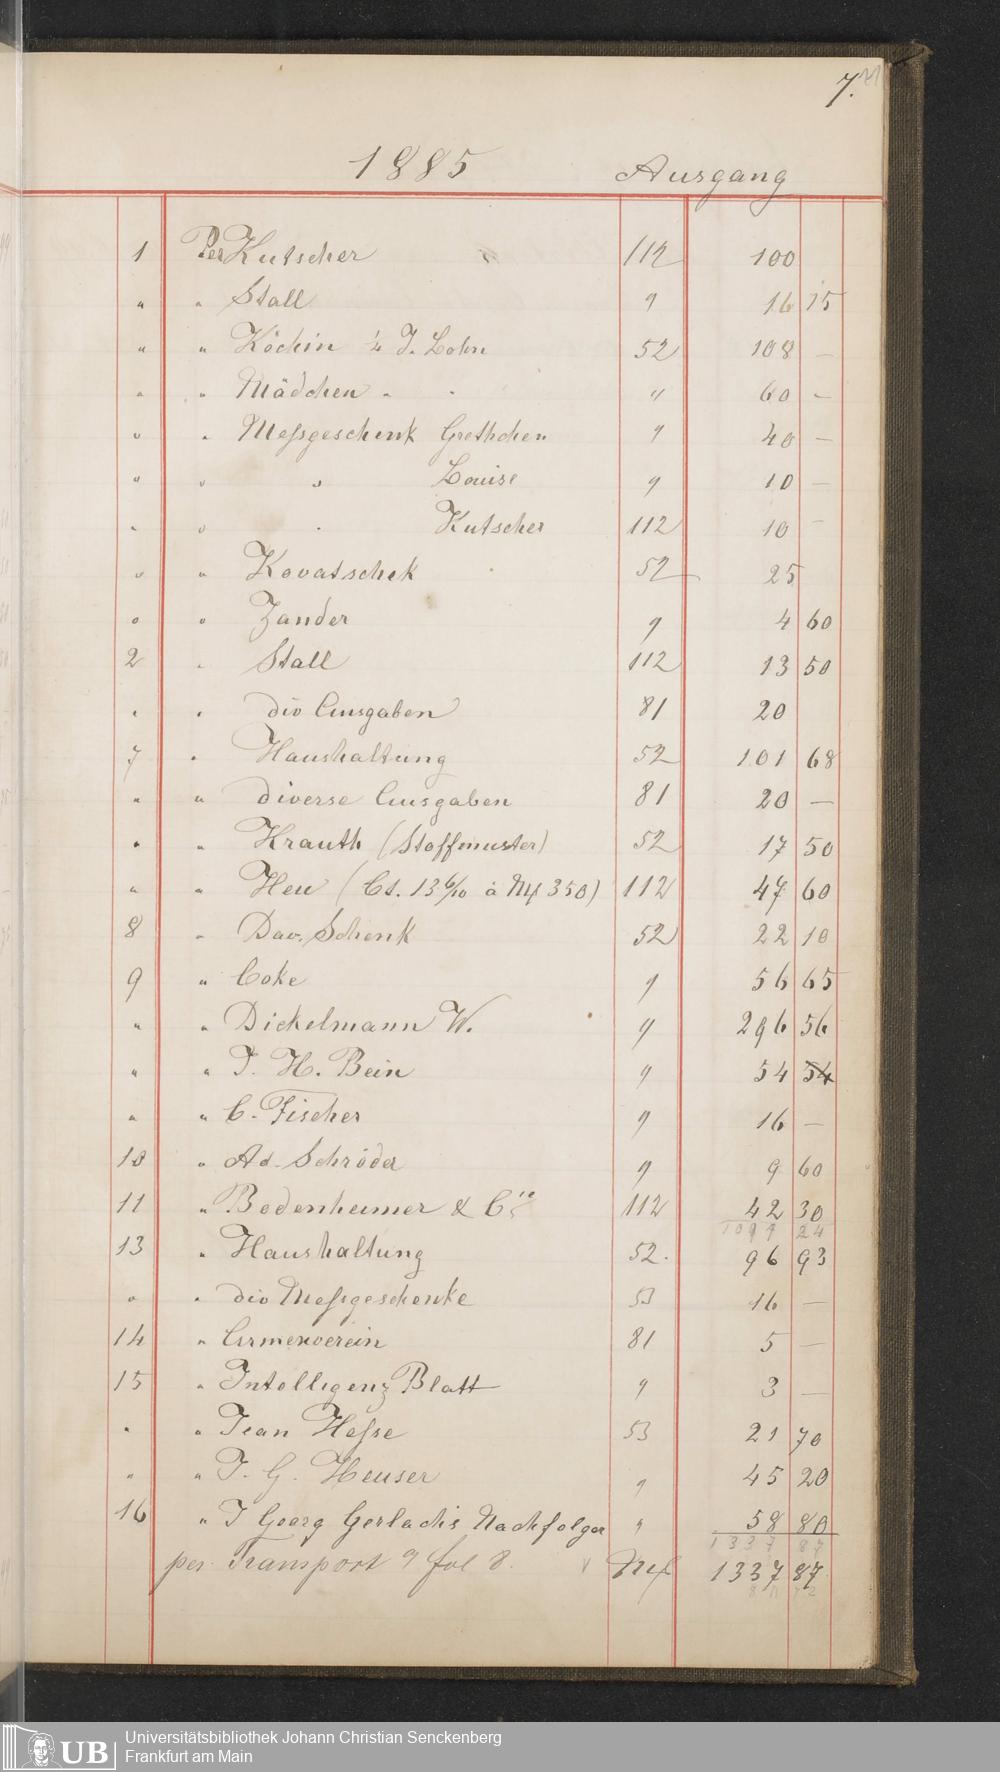 7.
1885 Ausgang
1 Per Kutscher 112 100
" " Stall " 16 75
" " Köchin ¼ J. Lohn 52 108 —
" " Mädchen " " " 60 —
" " Meßgeschenk Grethchen " 40 —
" " " Louise " 10 —
" " " Kutscher 112 10 —
" " Kovatschek 52 25
" " Zander " 4 60
2 " Stall 112 13 50
" " div Ausgaben 81 20
7 " Haushaltung 52 101 68
" " diverse Ausgaben 81 20 —
" " Krauth (Stoffmuster) 52 17 50
" " Heu (Ct. 13 6/10 à M 350) 112 47 60
8 " Dav. Schenk 52 22 10
9 " Coke " 56 65
" " Dickelmann W. " 296 56
" " J. H. Bein " 54 54
" " C. Fischer " 16 —
10 " Ad. Schröder " 9 60
11 " Bodenheimer & Cie 112 42 30
24
13 " Haushaltung 52. 96 93
" " div Meßgeschenke 53 16 —
14 " Armenverein 81 5 —
15 " Intelligenz Blatt " 3 —
" " Jean Hesse 53 21 70
" " J. G. Heuser " 45 20
16 " J Georg Gerlachs Nachfolger " 58 80
1337 87
per Transport " fol 8. M 1337 87
UB
Universitätsbibliothek Johann Christian Senckenberg
Frankfurt am Main